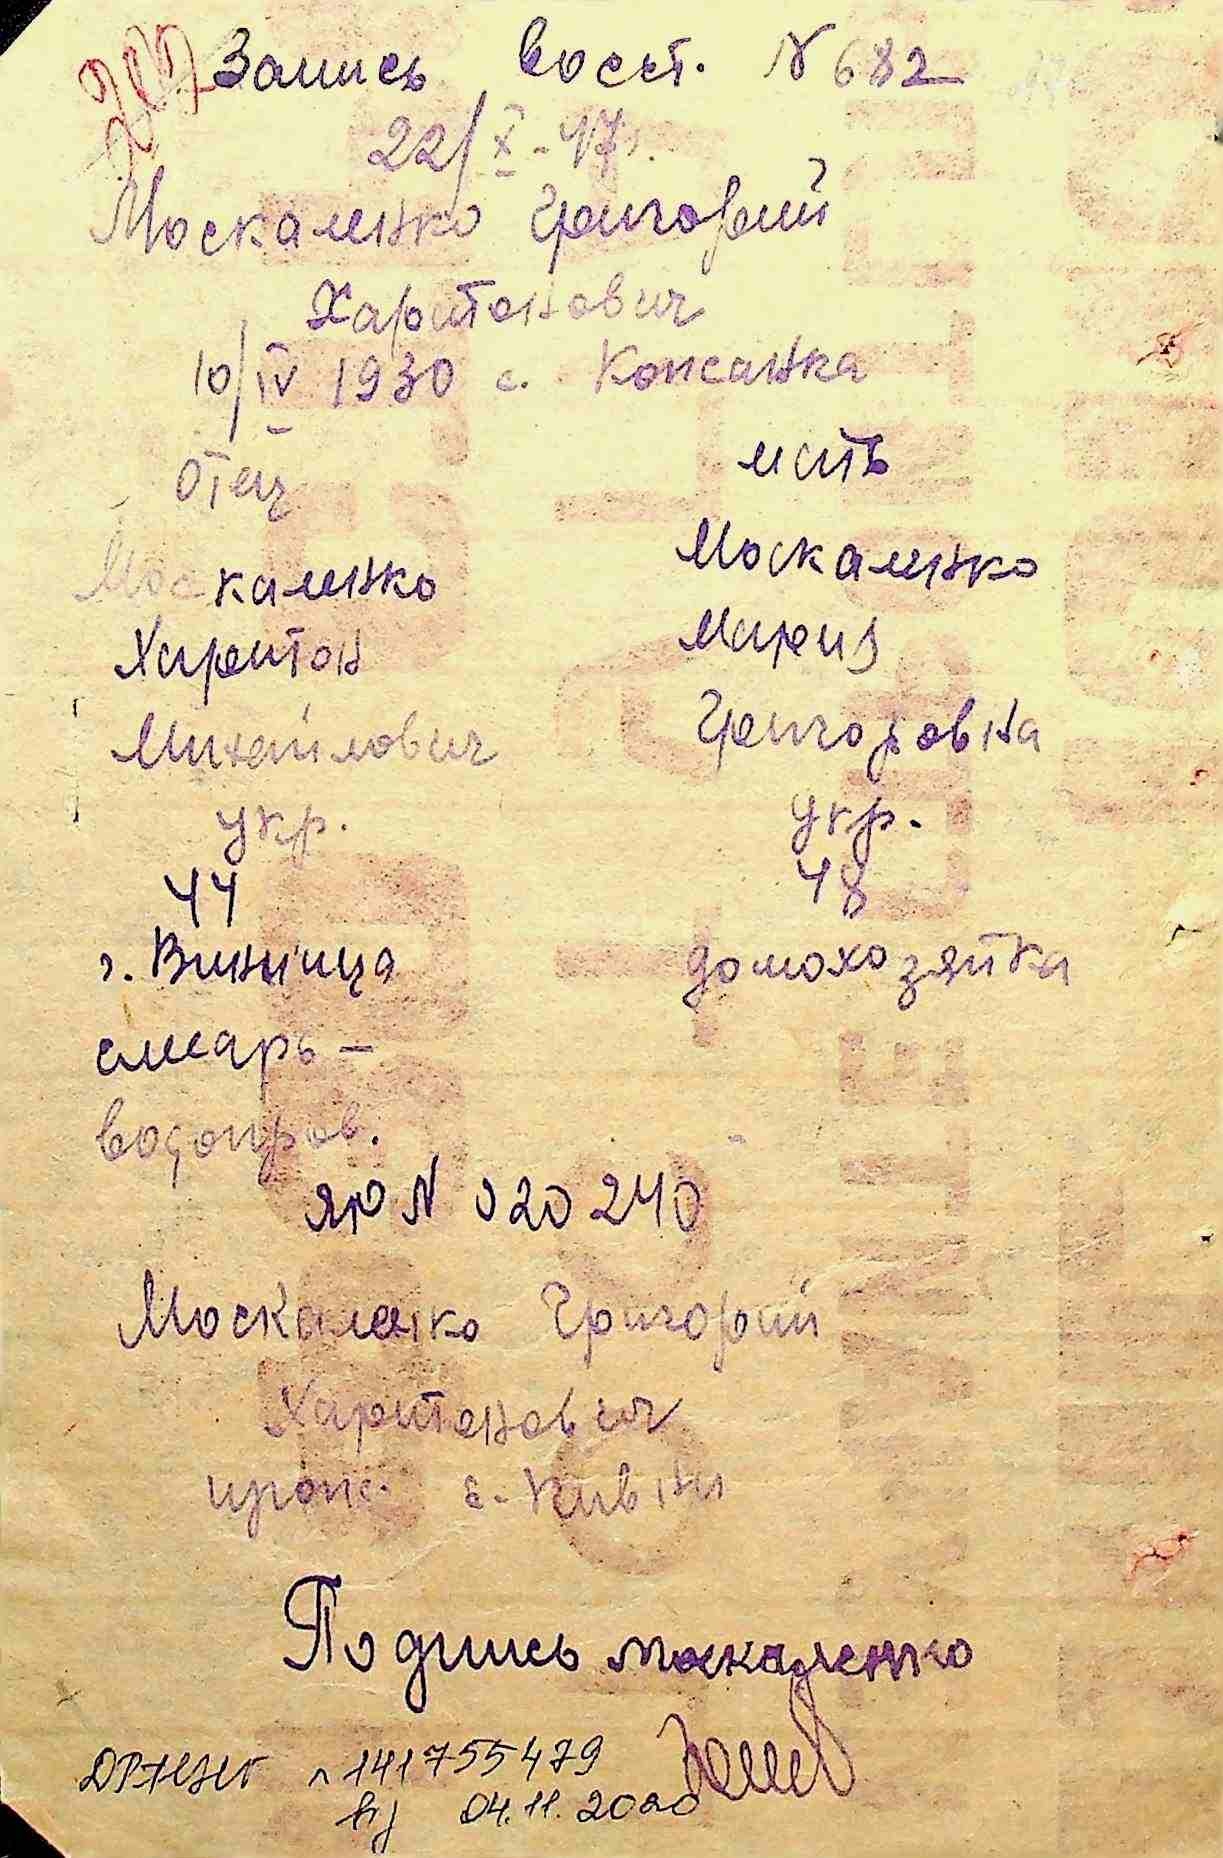 207 Запись восст. N 682
22/X-47г.
Москаленко Григорий
Харитонович
10/IV 1930 с. Кожанка
Отец
мать
Москаленко
Харитон
Михайлович
укр.
44
г. Винница
слесарь-
водопров.
Москаленко
Мария
Григоровна
укр.
48
домохозяйка
ЯЮ N 020240
Москаленко Григорий
Харитонович
прож.
Подпись Москаленко
141755479
04.11.2020